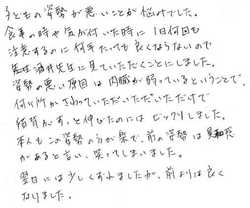 子どもの姿勢が悪いことが悩みでした。
食事の時や気が付いた時に1日何回も
注意するのに何年たっても良くならないので
先生に見ていただくことにしました。
姿勢の悪い原因は内臓が弱っているということで、
何ヶ所かさわっていただいただけで
背筋がすっと伸びたのにはビックリしました。
本人もこの姿勢の方が楽で、前の姿勢は違和感
があると言い、笑ってしまいました。
翌日には少しくずれましたが、前よりは良く
なりました。